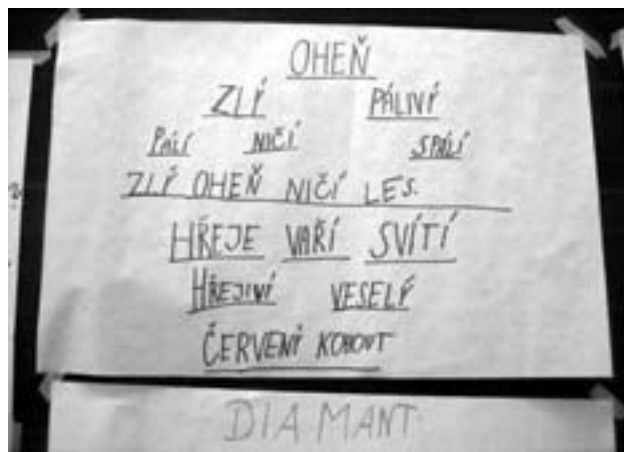 OHEŇ
ZLÝ PÁLIVÝ
PÁLÍ NIČÍ SPÁLÍ
ZLÝ OHEŇ NIČÍ LES.
HŘEJE VAŘÍ SVÍTÍ
HŘEJIVÝ VESELÝ
ČERVENÝ KOHOUT
DIAMANT